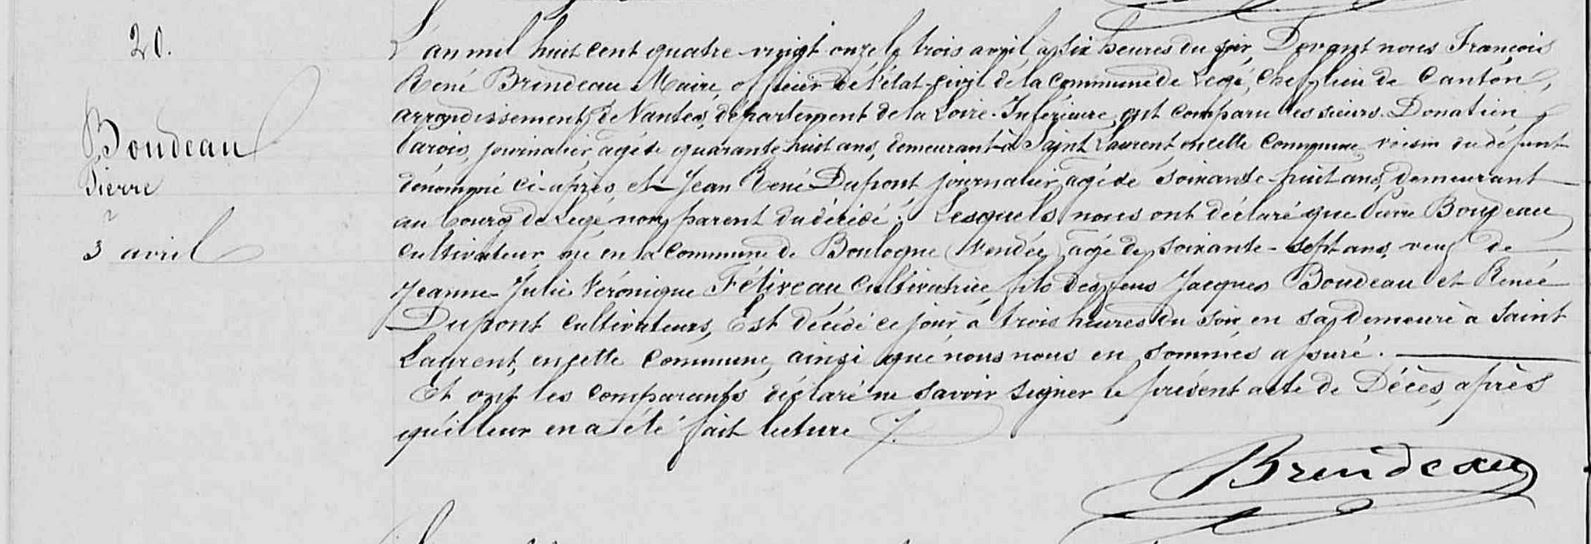 20.
Boudeau
Pierre
3 avril
L'an mil huit cent quatre-vingt onze le trois avril, à six heures du soir, Devant nous François
René Brindeau Maire, officier de l'état-civil de la Commune de Legé, Chef-lieu de Canton,
arrondissement de Nantes, département de la Loire-Inférieure, ont comparu les sieurs Donatien
journalier, âgé de quarante huit ans, demeurant à Saint Laurent en cette Commune, voisin du défunt
dénommé ci-après et Jean René Dupont journalier, âgé de soixante-huit ans, demeurant
au bourg de Legé non parent du décédé; Lesquels nous ont déclaré que Pierre Boudeau
cultivateur né en la Commune de Boulogne (Vendée) âgé de soixante-sept ans, veuf de
Jeanne Julie Véronique Fétiveau Cultivatrice, fils des feus Jacques Boudeau et Renée
Dupont Cultivateurs, Est décédé ce jour à trois heures du soir, en sa demeure à Saint
Laurent, en cette Commune, ainsi que nous nous en sommes assuré.
Et ont les comparants déclaré ne savoir signer le présent acte de Décès, après
qu'il leur en a été fait lecture /.
Brindeau